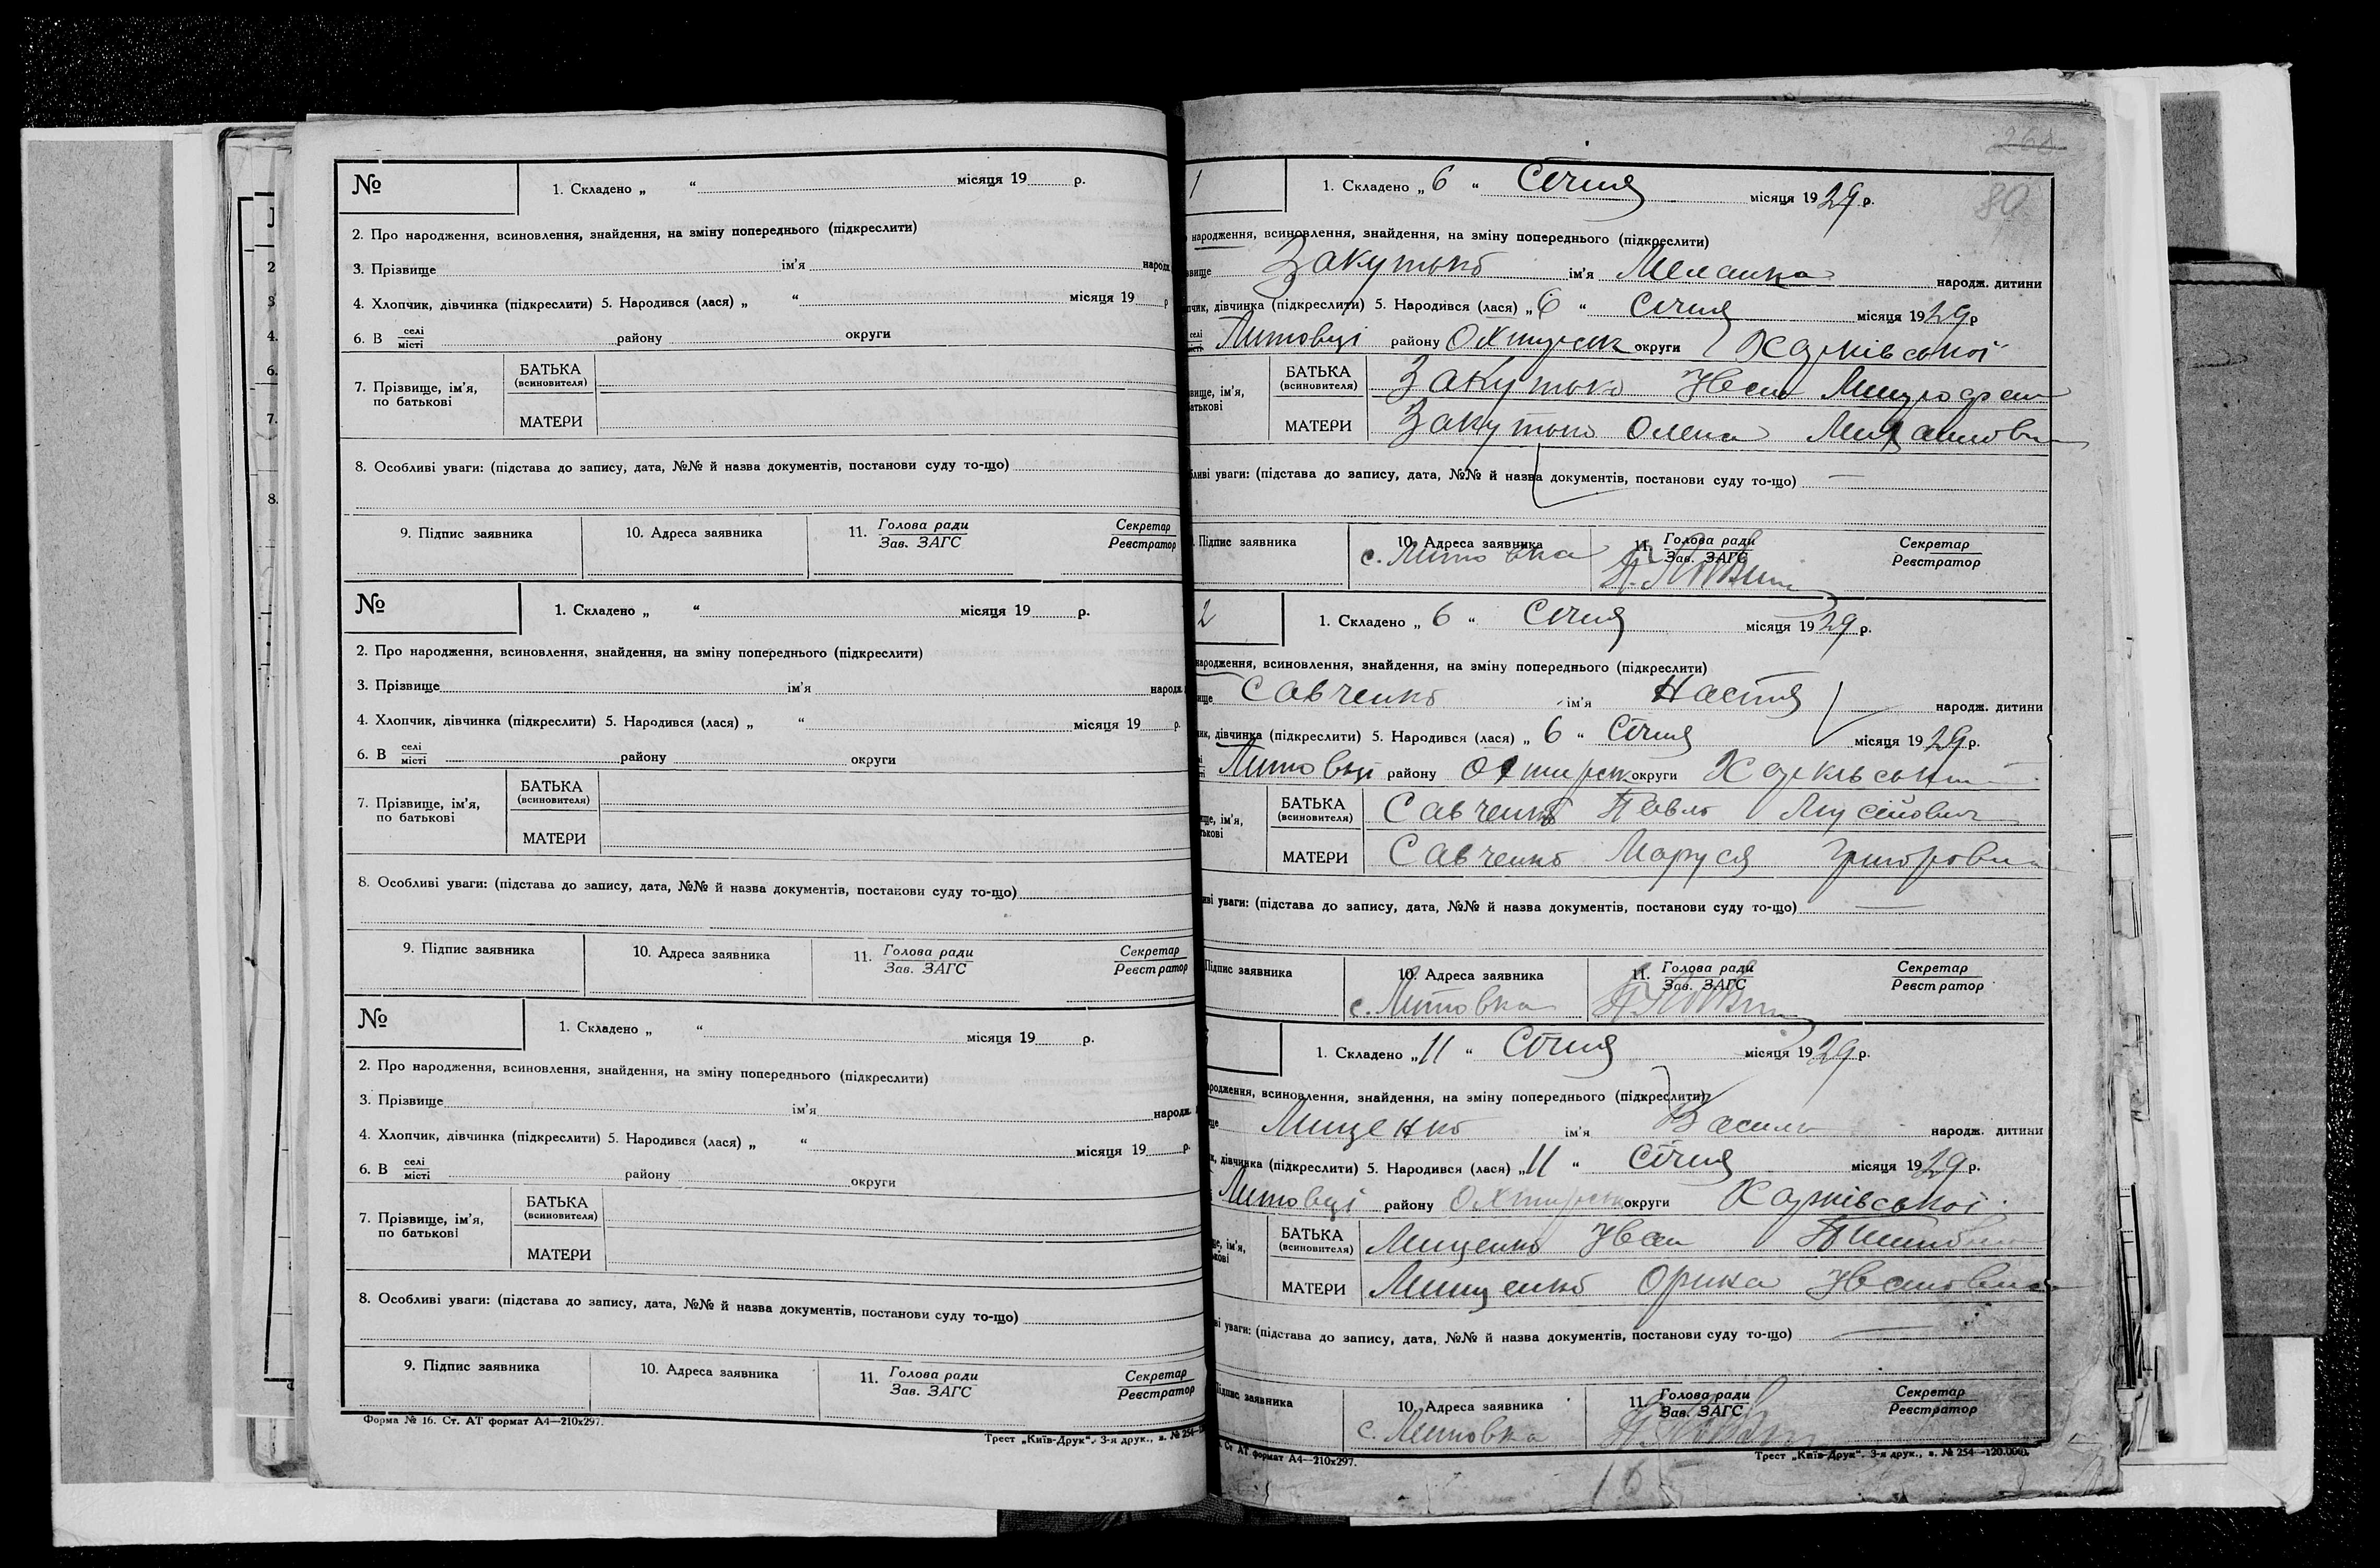 №
1. Складено „ “ місяця 19 р.
2. Про народження, всиновлення, знайдення, на зміну попереднього (підкреслити)
3. Прізвище ім'я народж.
4. Хлопчик, дівчинка (підкреслити) 5. Народився (лася) „ “ місяця 19 р
6. В селі місті району округи
7. Прізвище, ім'я, по батькові
БАТЬКА (всиновителя)
МАТЕРИ
8. Особливі уваги: (підстава до запису, дата, №№ й назва документів, постанови суду то-що)
9. Підпис заявника 10. Адреса заявника 11. Голова ради Зав. ЗАГС Секретар Реєстратор
№
1. Складено „ “ місяця 19 р.
2. Про народження, всиновлення, знайдення, на зміну попереднього (підкреслити)
3. Прізвище ім'я народж.
4. Хлопчик, дівчинка (підкреслити) 5. Народився (лася) „ “ місяця 19 р.
6. В селі місті району округи
7. Прізвище, ім'я, по батькові
БАТЬКА (всиновителя)
МАТЕРИ
8. Особливі уваги: (підстава до запису, дата, №№ й назва документів, постанови суду то-що)
9. Підпис заявника 10. Адреса заявника 11. Голова ради Зав. ЗАГС Секретар Реєстратор
№
1. Складено „ “ місяця 19 р.
2. Про народження, всиновлення, знайдення, на зміну попереднього (підкреслити)
3. Прізвище ім'я народж.
4. Хлопчик, дівчинка (підкреслити) 5. Народився (лася) „ “ місяця 19 р.
6. В селі місті району округи
7. Прізвище, ім'я, по батькові
БАТЬКА (всиновителя)
МАТЕРИ
8. Особливі уваги: (підстава до запису, дата, №№ й назва документів, постанови суду то-що)
9. Підпис заявника 10. Адреса заявника 11. Голова ради Зав. ЗАГС Секретар Реєстратор
Форма № 16. Ст. АТ формат А4—210x297.
Трест „Київ-Друк“. 3-я друк., з. № 254
268
80
1
1. Складено „ 6 “ Січня місяця 1929 р.
народження, всиновлення, знайдення, на зміну попереднього (підкреслити)
Закутько ім'я Меланка народж. дитини
дівчинка (підкреслити) 5. Народився (лася) „ 6 “ Січня місяця 1929 р
селі Литовці району Охтирськ округи Харківської
БАТЬКА (всиновителя) Закутько Иван
МАТЕРИ Закутько Олена
уваги: (підстава до запису, дата, №№ й назва документів, постанови суду то-що) —
Підпис заявника 10. Адреса заявника 11. Голова ради Зав. ЗАГС Секретар Реєстратор
с. Литовка
2
1. Складено „ 6 “ Січня місяця 1929 р.
народження, всиновлення, знайдення, на зміну попереднього (підкреслити)
Савченко ім'я Настя народж. дитини
дівчинка (підкреслити) 5. Народився (лася) „ 6 “ Січня місяця 1929 р.
Литовці району Охтирськ округи
БАТЬКА (всиновителя) Савченко Павло Мусійович
МАТЕРИ Савченко Маруся
уваги: (підстава до запису, дата, №№ й назва документів, постанови суду то-що) —
Підпис заявника 10. Адреса заявника 11. Голова ради Зав. ЗАГС Секретар Реєстратор
с. Литовка
1. Складено „ 11 “ Січня місяця 1929 р.
народження, всиновлення, знайдення, на зміну попереднього (підкреслити)
Мищенко ім'я Василь народж. дитини
дівчинка (підкреслити) 5. Народився (лася) „ 11 “ Січня місяця 1929 р.
Литовці району Охтирськ округи Харківської
БАТЬКА (всиновителя) Мищенко Иван
МАТЕРИ Мищенко Орина Ивановна
уваги: (підстава до запису, дата, №№ й назва документів, постанови суду то-що) —
Підпис заявника 10. Адреса заявника 11. Голова ради Зав. ЗАГС Секретар Реєстратор
с. Литовка
Ст АТ формат А4—210x297.
Трест „Київ-Друк“. 3-я друк., з. № 254—120.000.